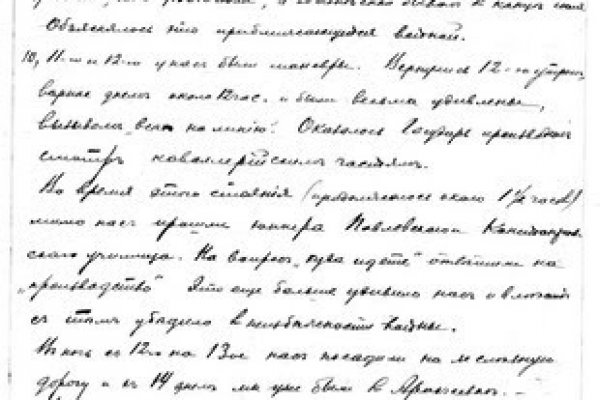 Объяснялось это приближающейся войной.
10, 11-го и 12-го у нас были маневры. Вернулись 12-го утром,
вернее днем около 12 час. и были весьма удивлены,
вызовом „всех на линию". Оказалось Государь производил
смотр кавалерийским частям.
Во время этого стояния (продолжалось около 1 1/2 часов)
мимо нас прошли юнкера Павловского
ского училища. На вопрос „куда идете" отвечали на
„производство" Это еще больше удивило нас и
с тем убедило в неизбежности войны.
В ночь с 12-го на 13-ое нас посадили на железную
дорогу и с 14 днем мы уже были в